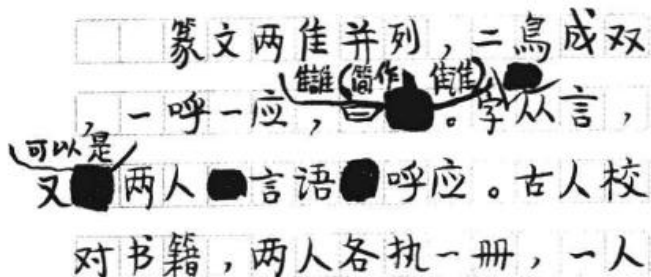 篆文两隹并列，二鳥成双
，一呼一应，曰讎(简作雠)。字从言，
又可以是两人言语呼应。古人校
对书籍，两人各执一册，一人